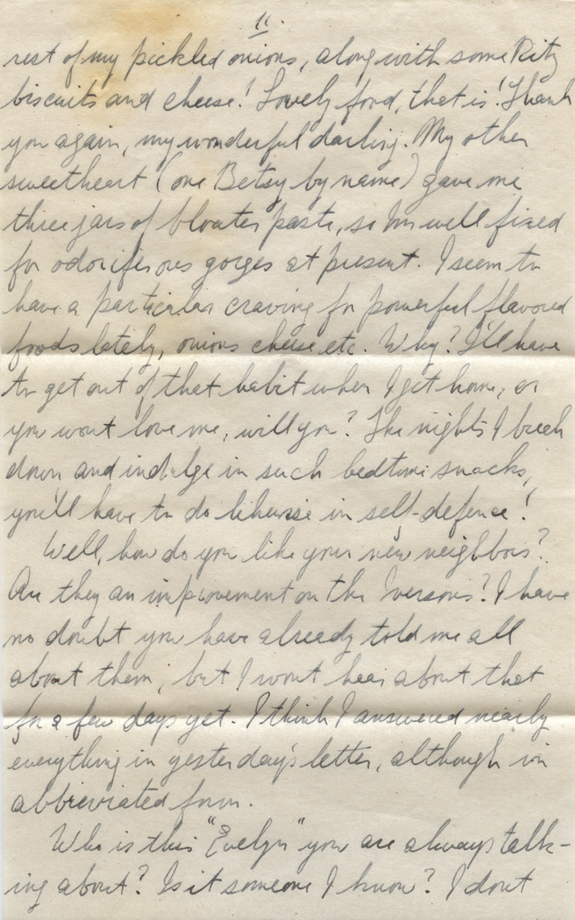 11.
rest of my pickled onions, along with some Ritz
biscuits and cheese! Lovely food, that is! Thank
you again, my wonderful darling. My other
sweetheart (one Betsy by name) gave me
three jars of bloater paste, so I'm well fixed
for odoriferous gorges at present. I seem to
have a particular craving for powerful flavored
foods lately, onions cheese etc. Why? I'll have
to get out of that habit when I get home, or
you wont love me, will you? The nights I break
down and indulge in such bedtime snacks,
you'll have to do likewise in self-defence!
Well, how do you like your new neighbors?
Are they an improvement on the Iversons? I have
no doubt you have already told me all
about them, but I wont hear about that
for a few days yet. I think I answered nearly
everything in yesterday's letter, although in
abbreviated form.
Who is this "Evelyn" you are always talk-
ing about? Is it someone I know? I dont